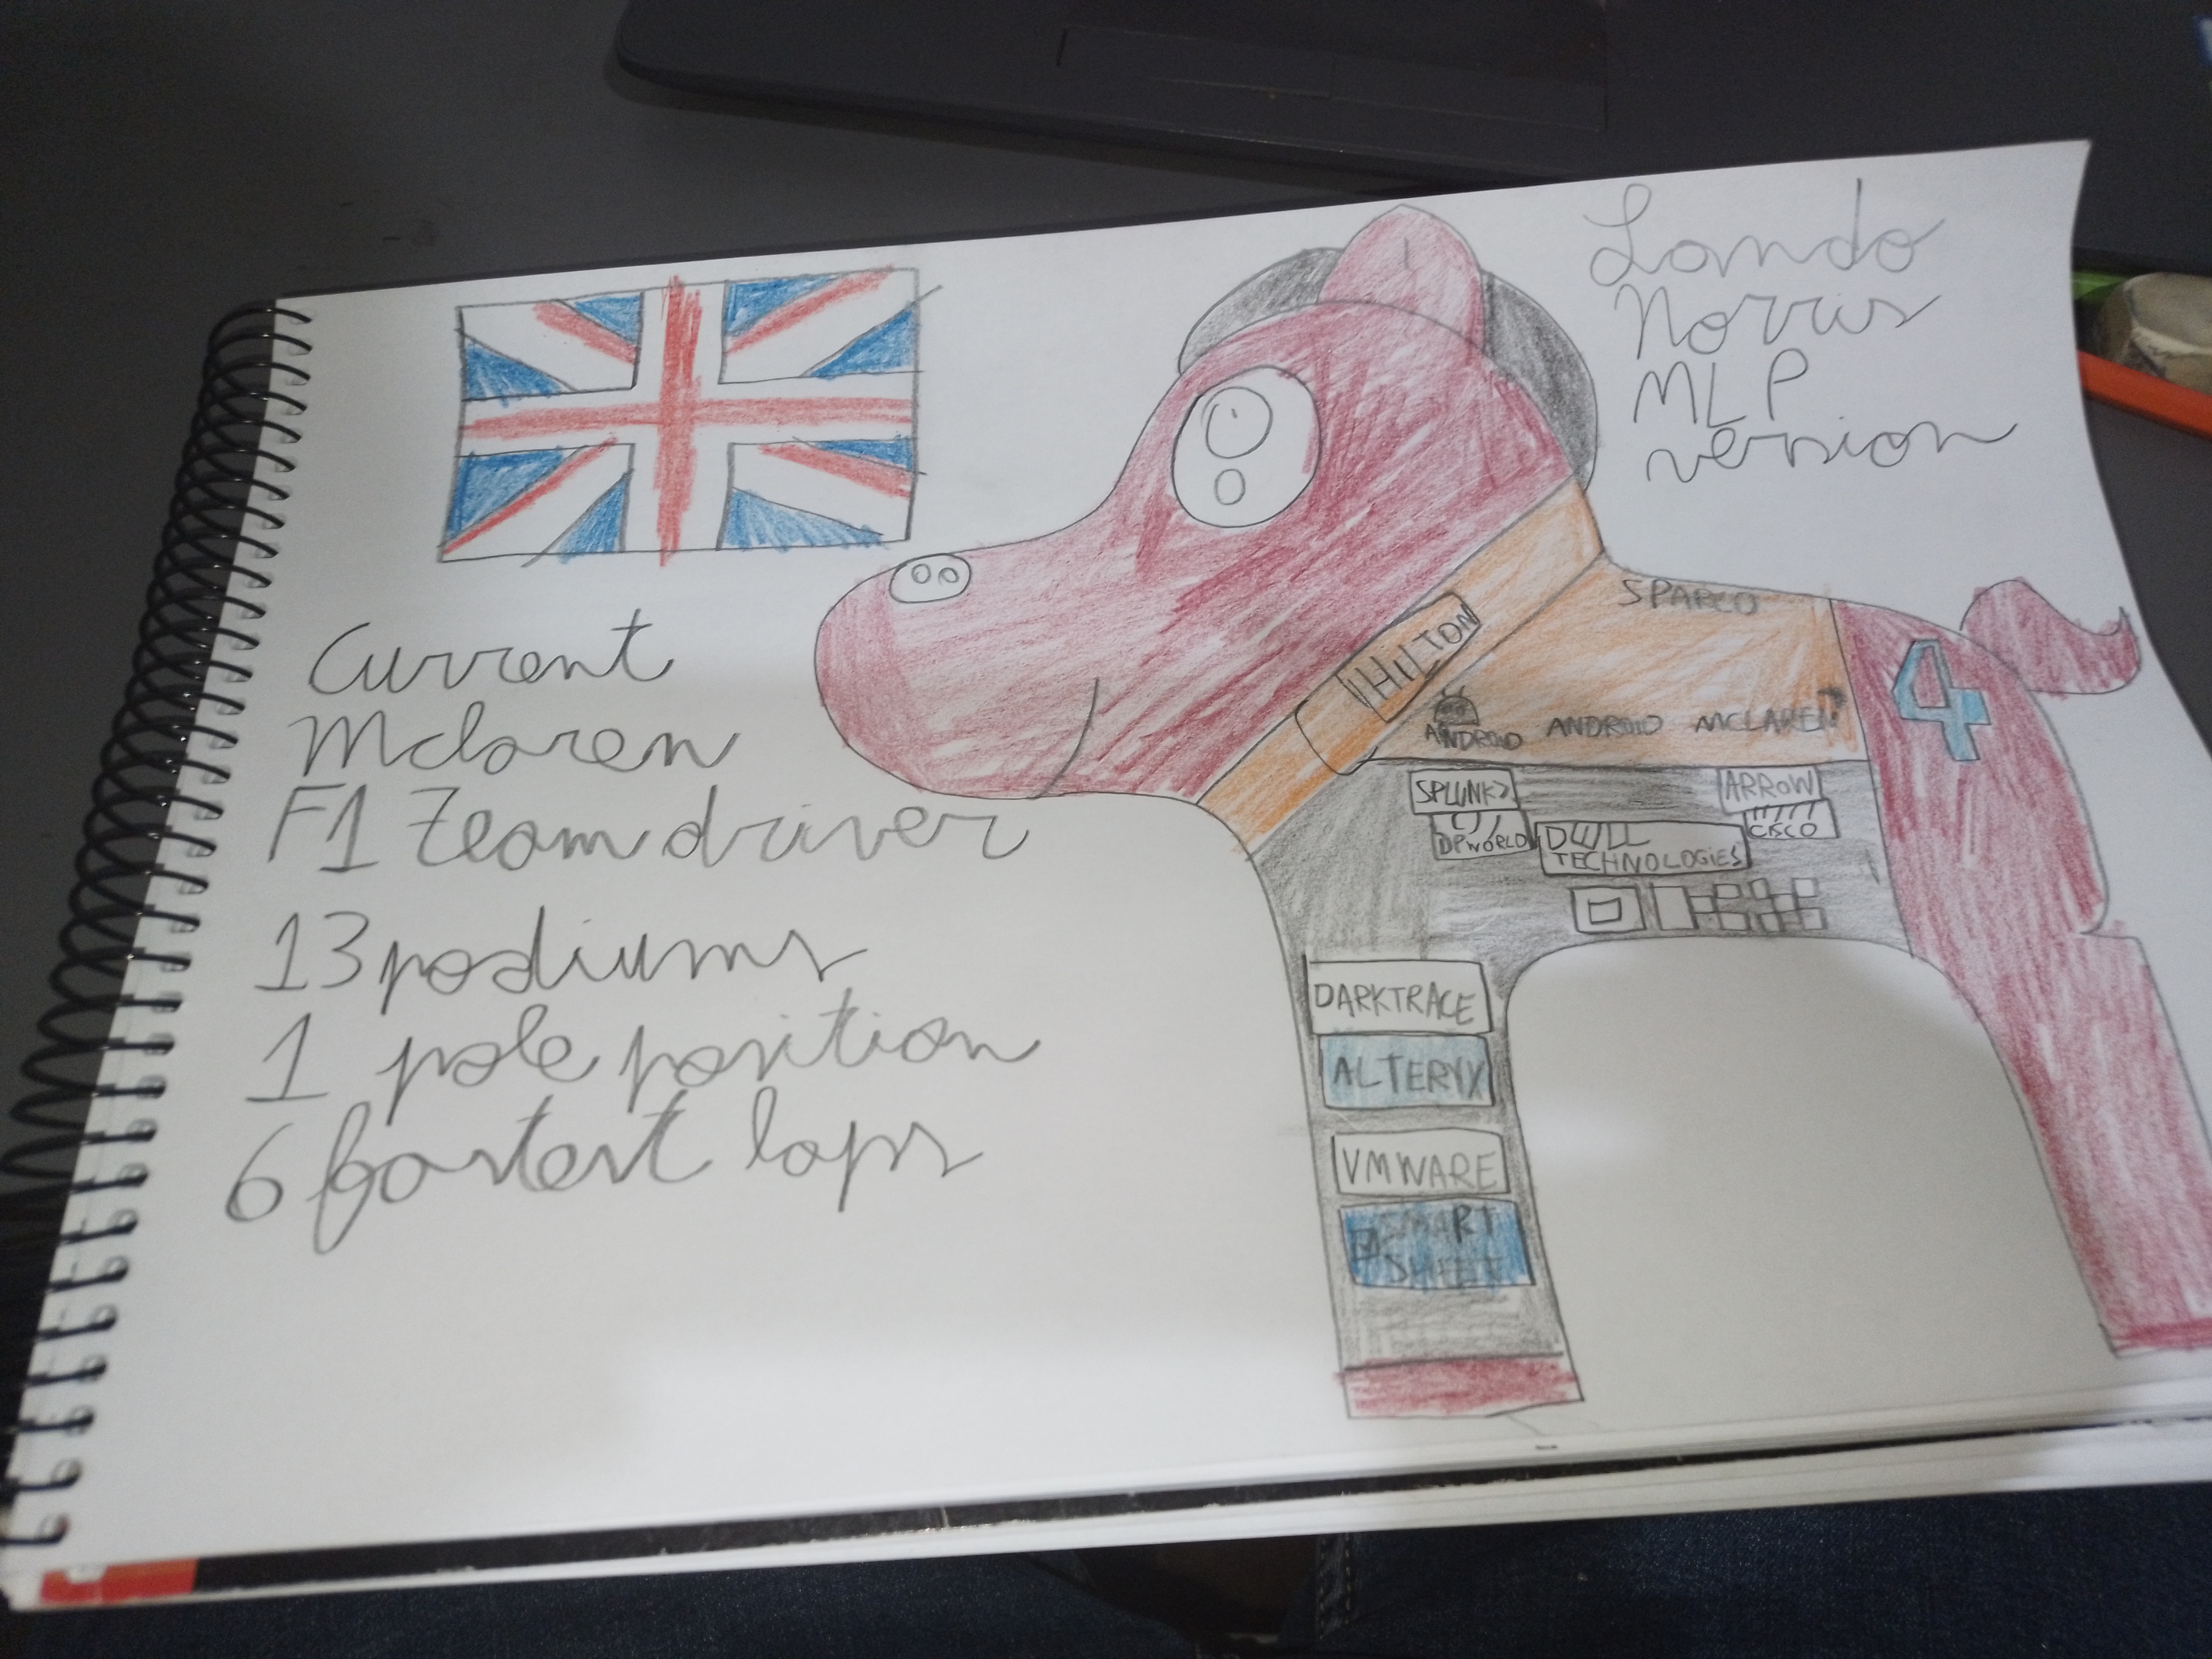 Lando
Norris
MLP
version
Current
Mclaren
F1 Team driver
13 podiums
1 pole position
6 fastest laps
HILTON
SPARCO
4
ANDROID ANDROID MCLAREN
SPLUNK> ARROW
DPWORLD DELL CISCO
TECHNOLOGIES
DARKTRACE
ALTERYX
VMWARE
SMART
SHEET